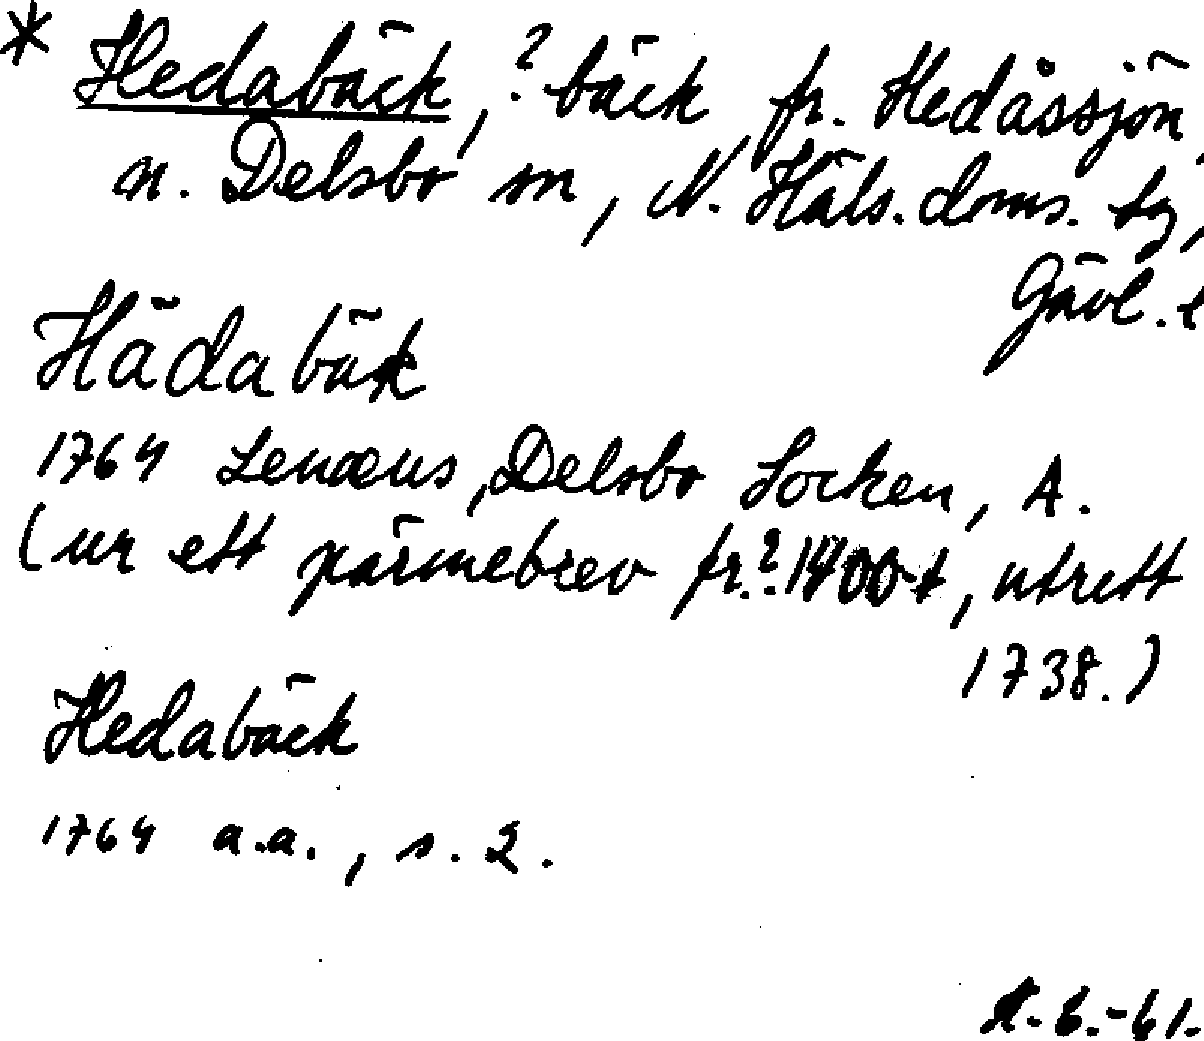 * Hedabäck, ? bäck fr. Hedåssjön,
n. Delsbo sn, N. Häls. doms. tg,
Gävl. l
Hädabäk
1764 Lenæus, Delsbo Socken, A.
(ur ett pärmebrev fr. ? 1400-t, utrett
1738.)
Hedabäck
1764 a.a., s. 2.
6.-61.